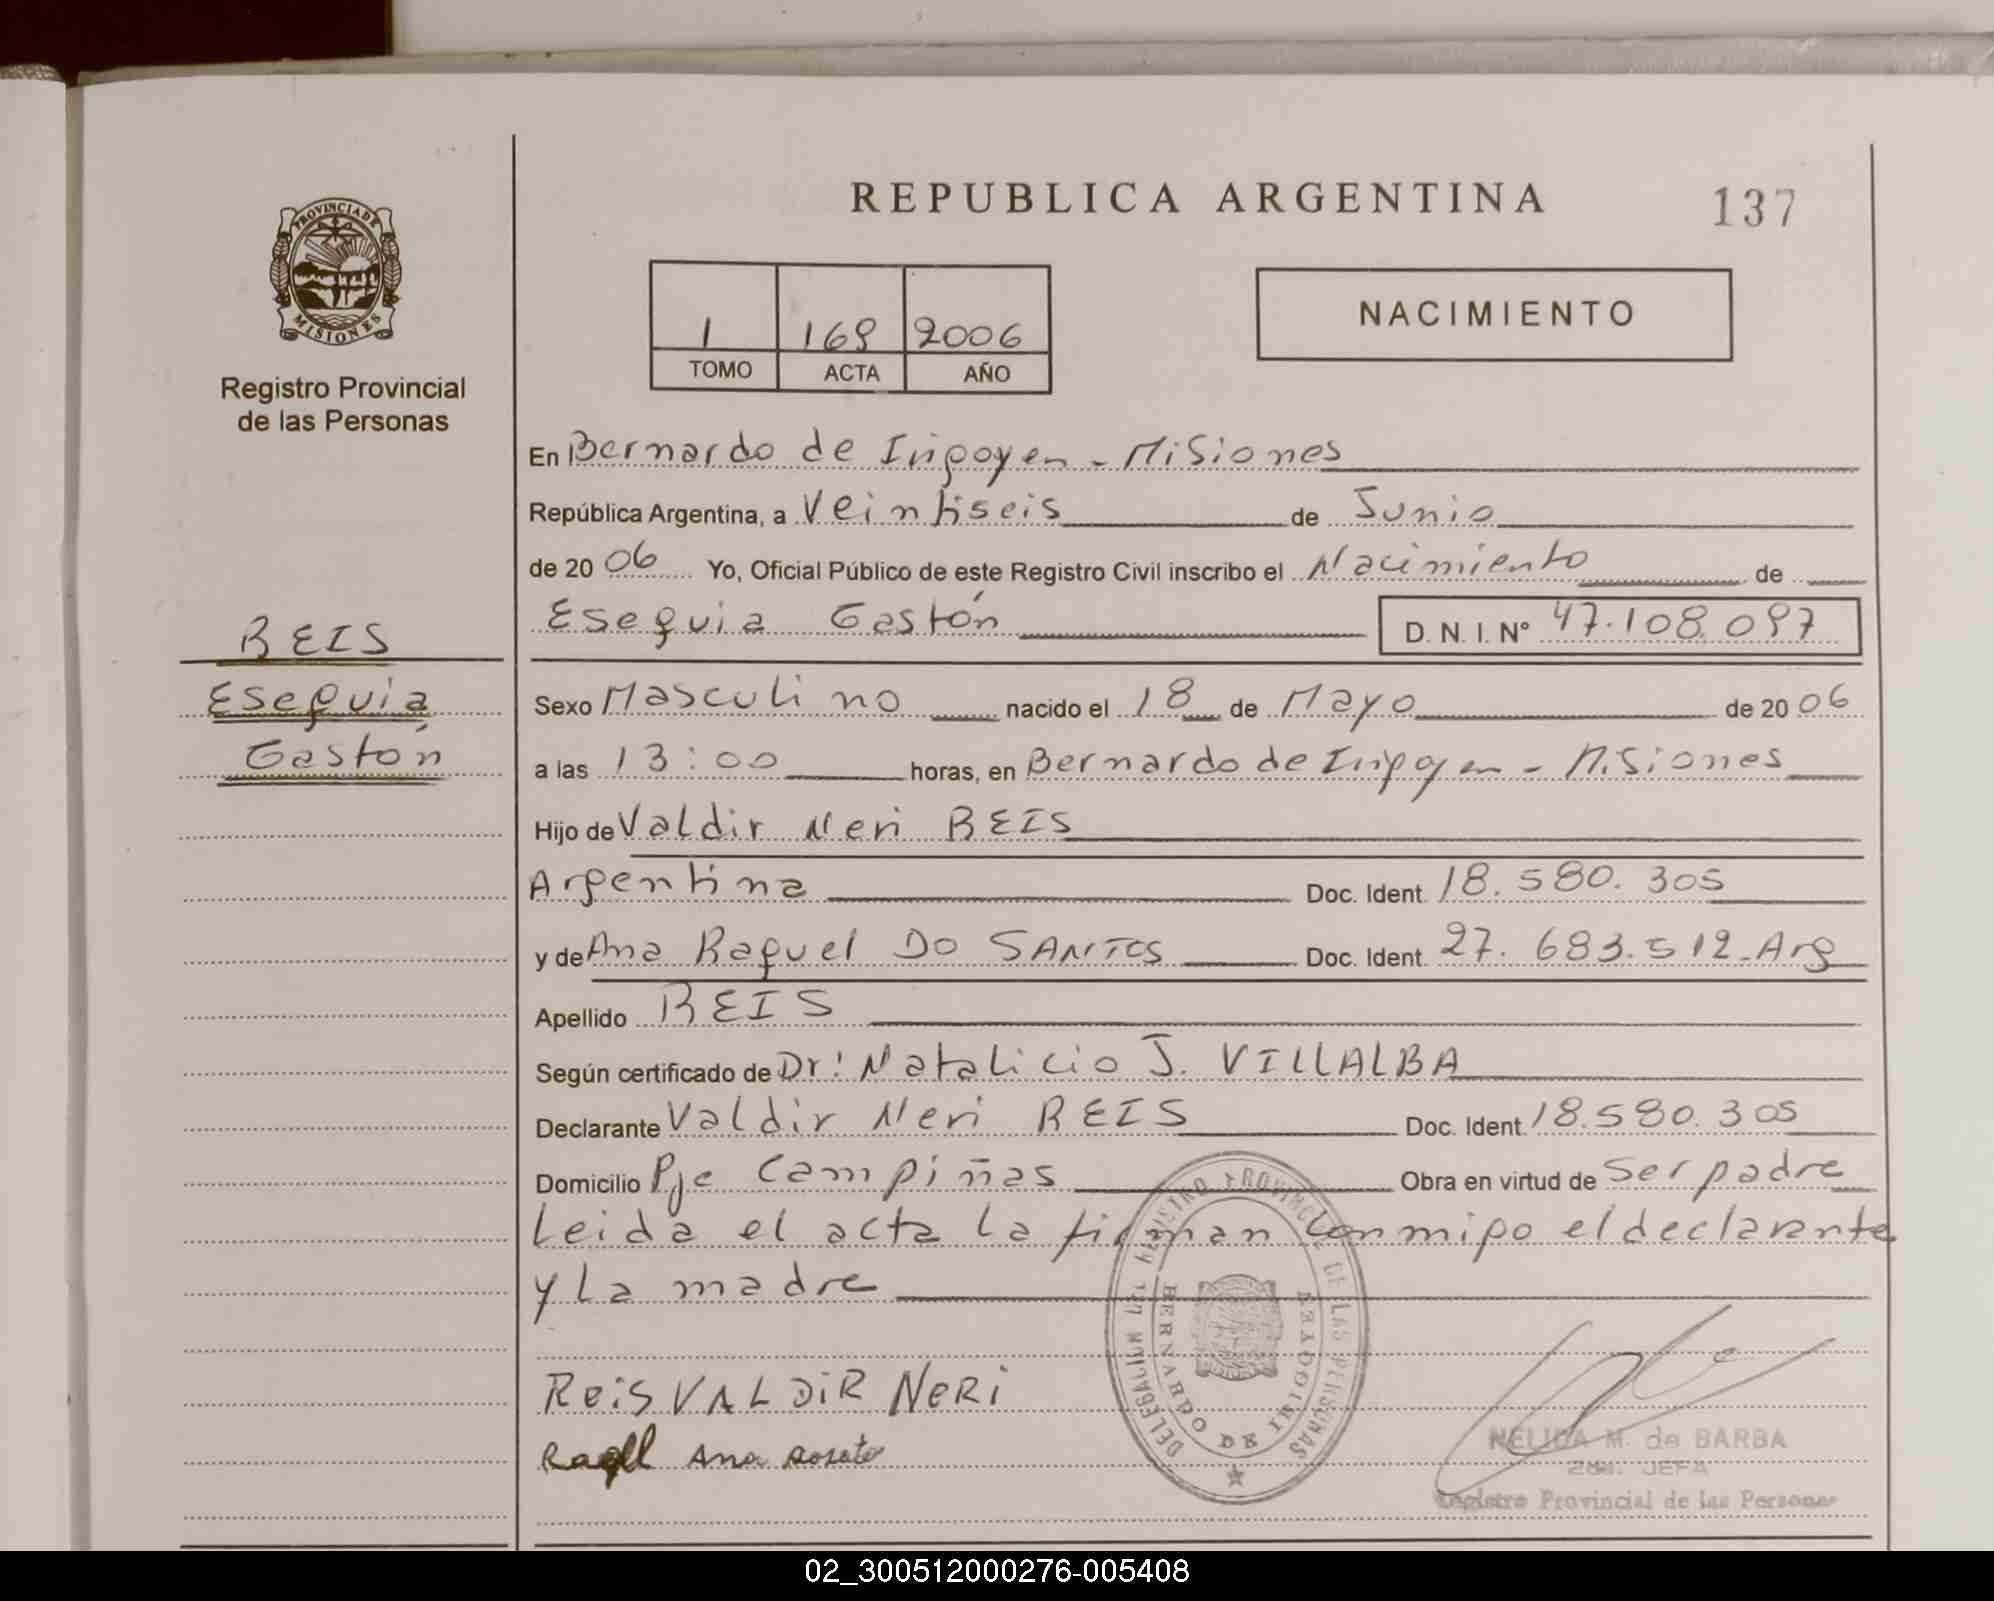 REPUBLICA ARGENTINA
137
PROVINCIA DE
MISIONES
Registro Provincial
de las Personas
1 169 2006
TOMO ACTA AÑO
NACIMIENTO
En Bernardo de Irigoyen - Misiones
República Argentina, a Veintiseis de Junio
de 2006 Yo, Oficial Público de este Registro Civil inscribo el Nacimiento de
Esequia Gastón D. N. I. Nº 47.108.097
REIS
Esequia
Gastón
Sexo Masculino nacido el 18 de Mayo de 2006
a las 13:00 horas, en Bernardo de Irigoyen - Misiones
Hijo de Valdir Neri REIS
Argentina Doc. Ident. 18.580.305
y de Ana Raquel DO SANTOS Doc. Ident. 27.683.512-Arg
Apellido REIS
Según certificado de Dr: Natalicio J. VILLALBA
Declarante Valdir Neri REIS Doc. Ident. 18.580.305
Domicilio Pje Campiñas Obra en virtud de Ser padre
Leida el acta la firman conmigo el declarante
y La madre
REGISTRO PROVINCIAL DE LAS PERSONAS
BERNARDO DE IRIGOYEN
REiS VALDiR NERi
Ana
NELIDA M. de BARBA
2da. JEFA
Registro Provincial de las Personas
02_300512000276-005408